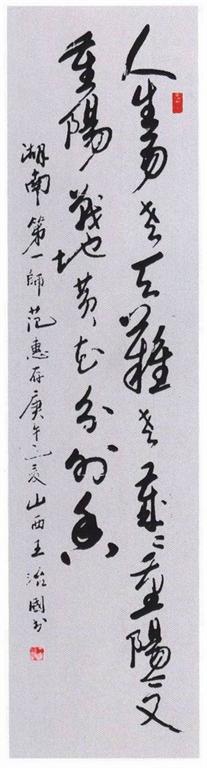 人生易老天難老歲々重陽今又
重陽戰地黄花分外香
湖南第一師范惠存庚午之夏山西王治國书